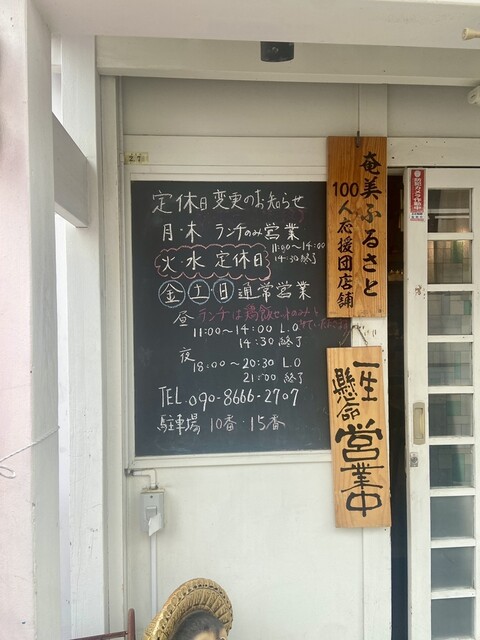 定休日変更のお知らせ
月・木 ランチのみ営業
11:00〜14:00
14:30 終了
火・水 定休日
金 土 日 通常営業
昼 ランチは鶏飯セットのみと
させていただきます
11:00〜14:00 L.O
14:30 終了
夜 18:00〜20:30 L.O
21:00 終了
TEL 090-8666-2707
駐車場 10番・15番
奄美ふるさと
100人応援団店舗
一生
懸命
営業中